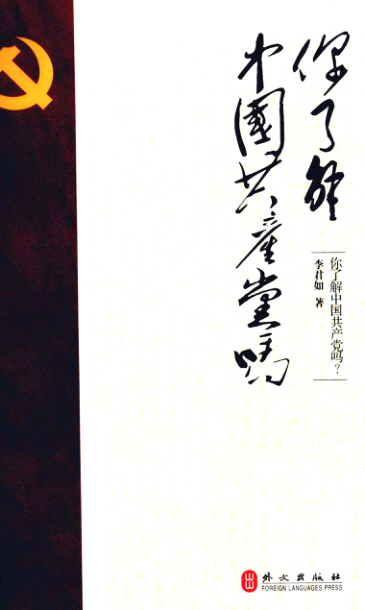 你了解
中國共產黨嗎
你了解中国共产党吗？
李君如 著
外文出版社
FOREIGN LANGUAGES PRESS